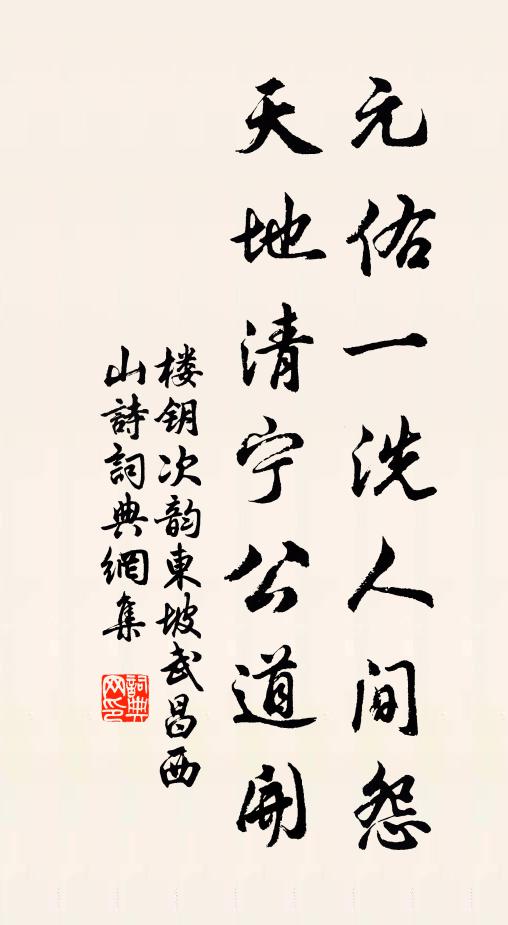 元佑一洗人间怨
天地清宁公道開
楼钥次韵東坡武昌西
山詩詞典網集
詞典网印